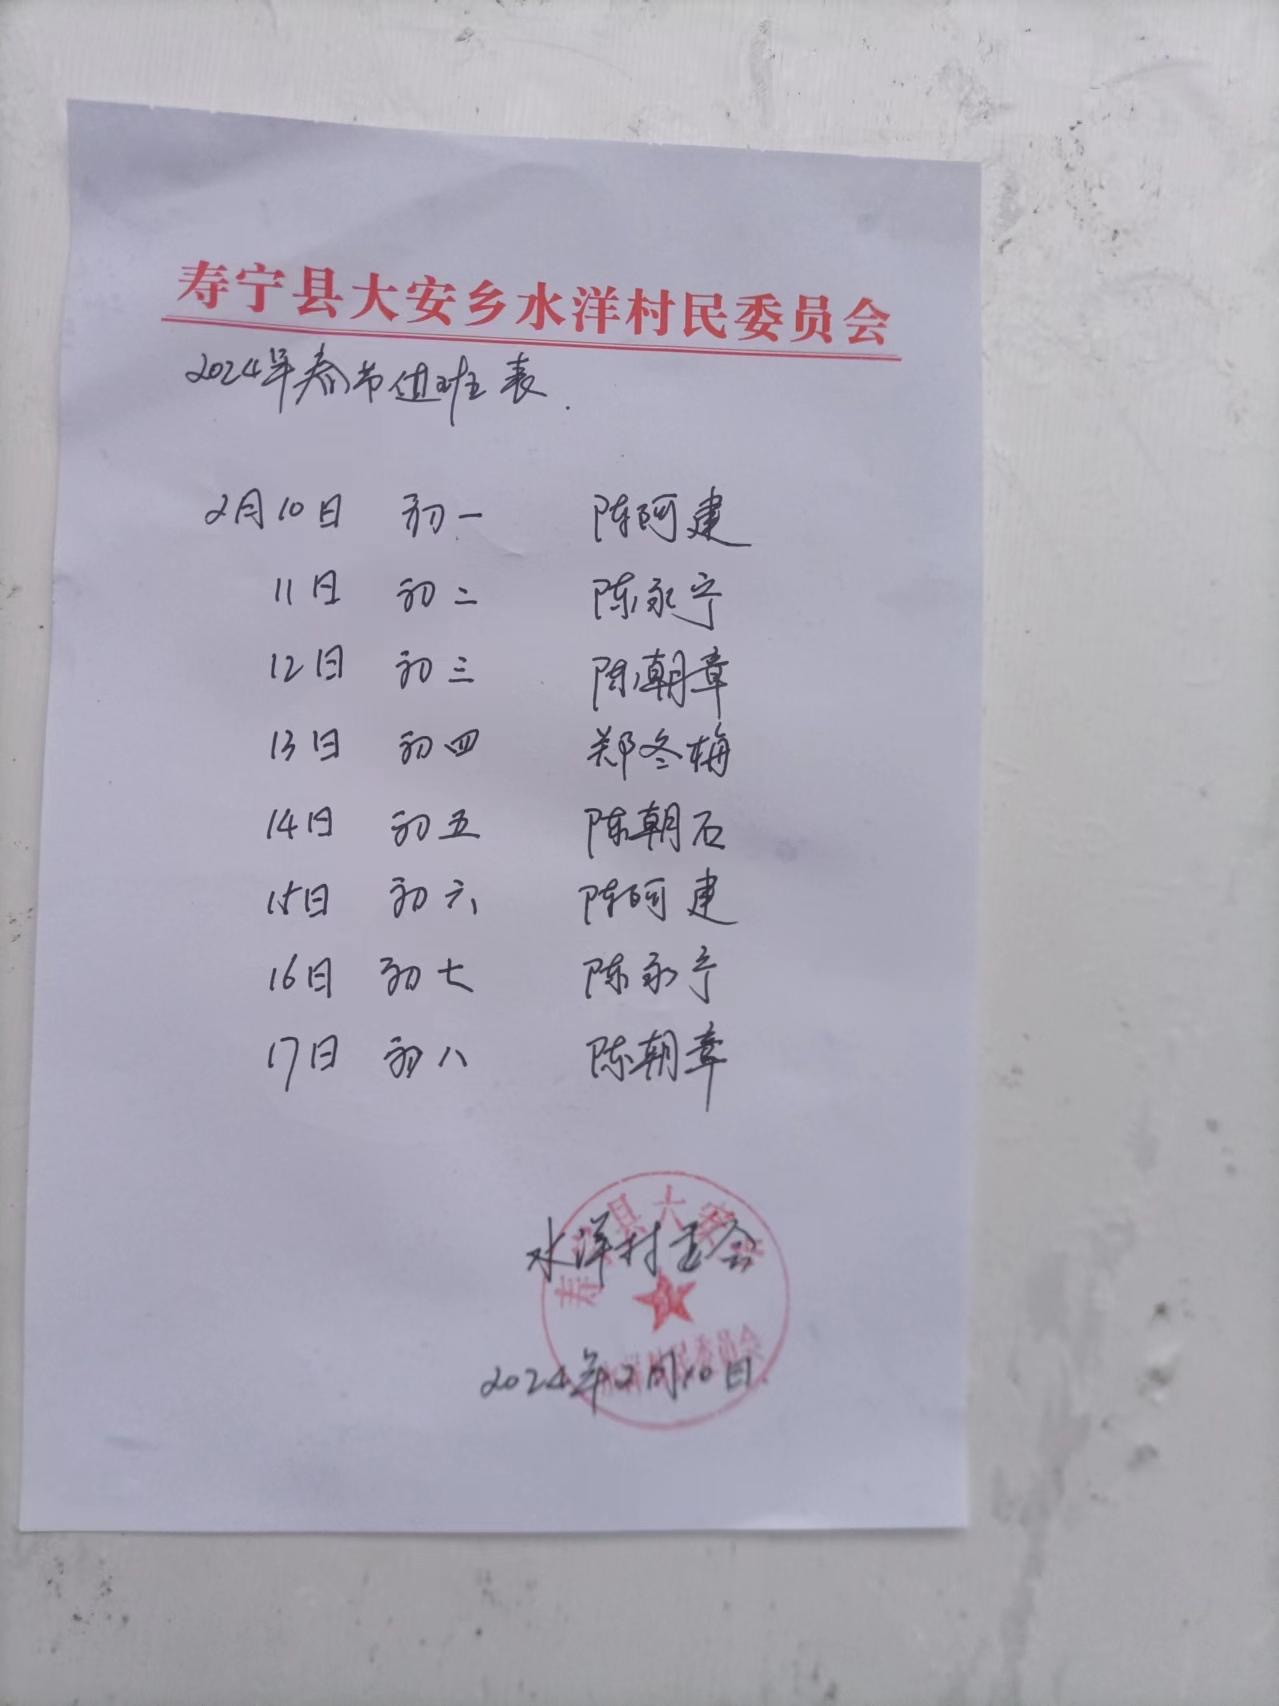 寿宁县大安乡水洋村民委员会
2024年春节值班表.
2月10日 初一 陈阿建
11日 初二 陈永宁
12日 初三 陈朝章
13日 初四 郑冬梅
14日 初五 陈朝石
15日 初六 陈阿建
16日 初七 陈永宁
17日 初八 陈朝章
水洋村委会
寿宁县大安乡
水洋村民委员会
2024年2月10日